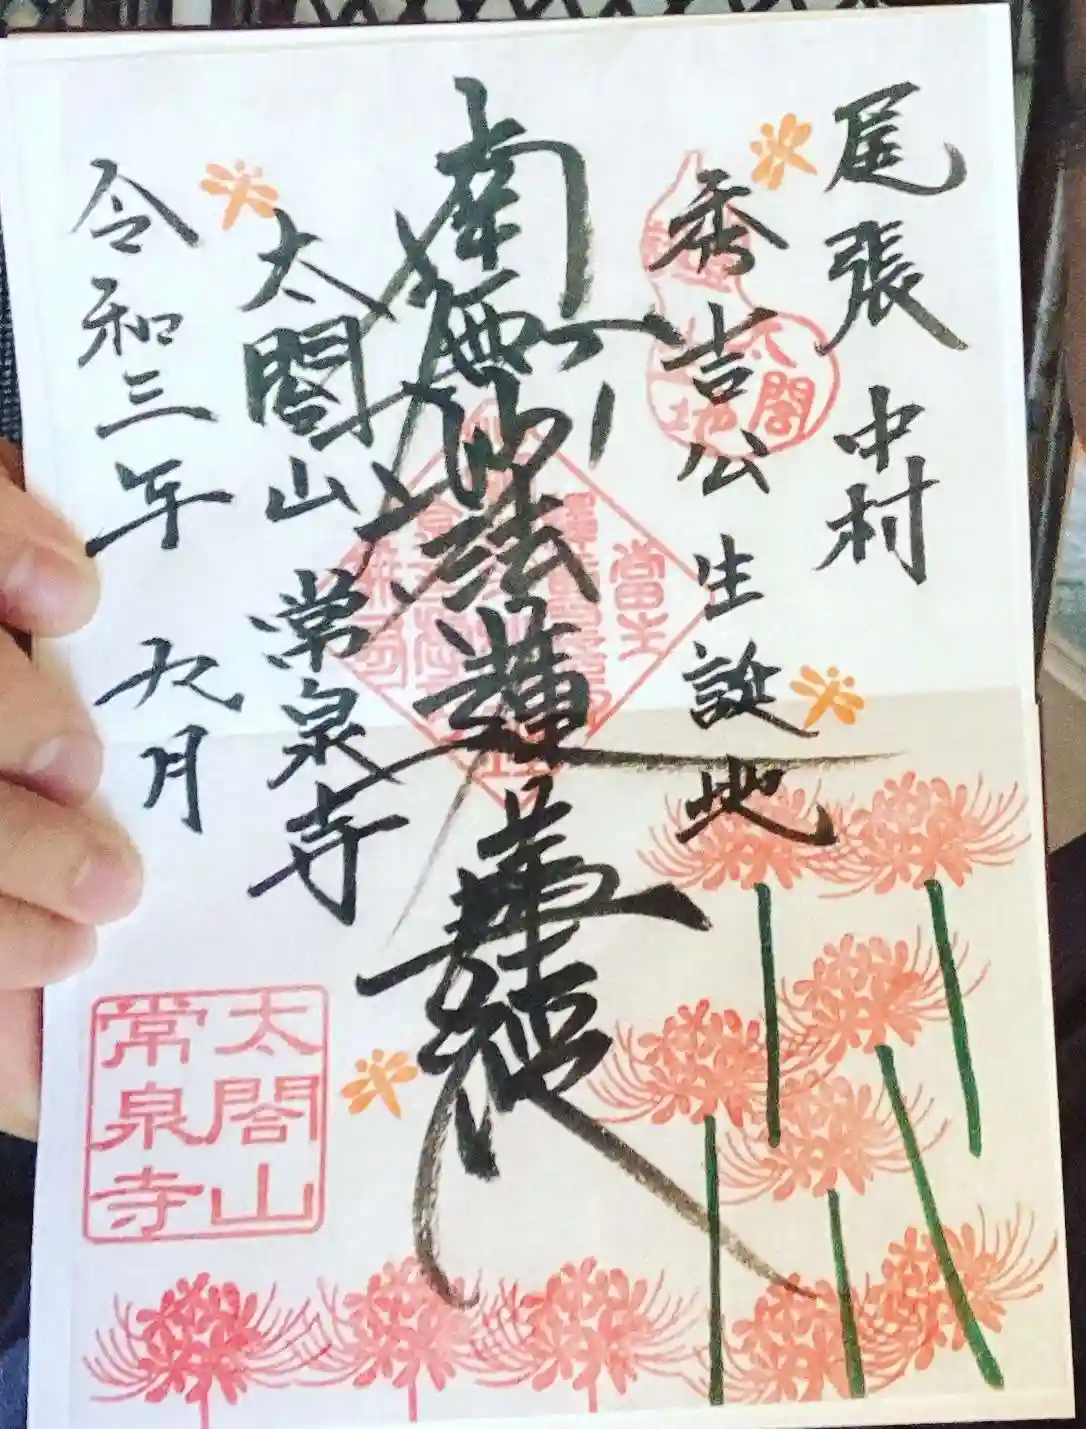 尾張 中村
秀吉公 生誕地
南無妙法蓮華経
太閤山 常泉寺
令和三年 九月
太閤
太閤山
常泉寺
當主